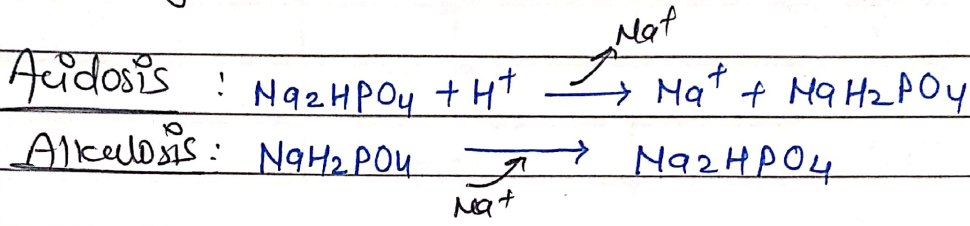 Na⁺
Acidosis : Na₂HPO₄ + H⁺ ⟶ Na⁺ + NaH₂PO₄
Alkalosis : NaH₂PO₄ ⟶ Na₂HPO₄
Na⁺